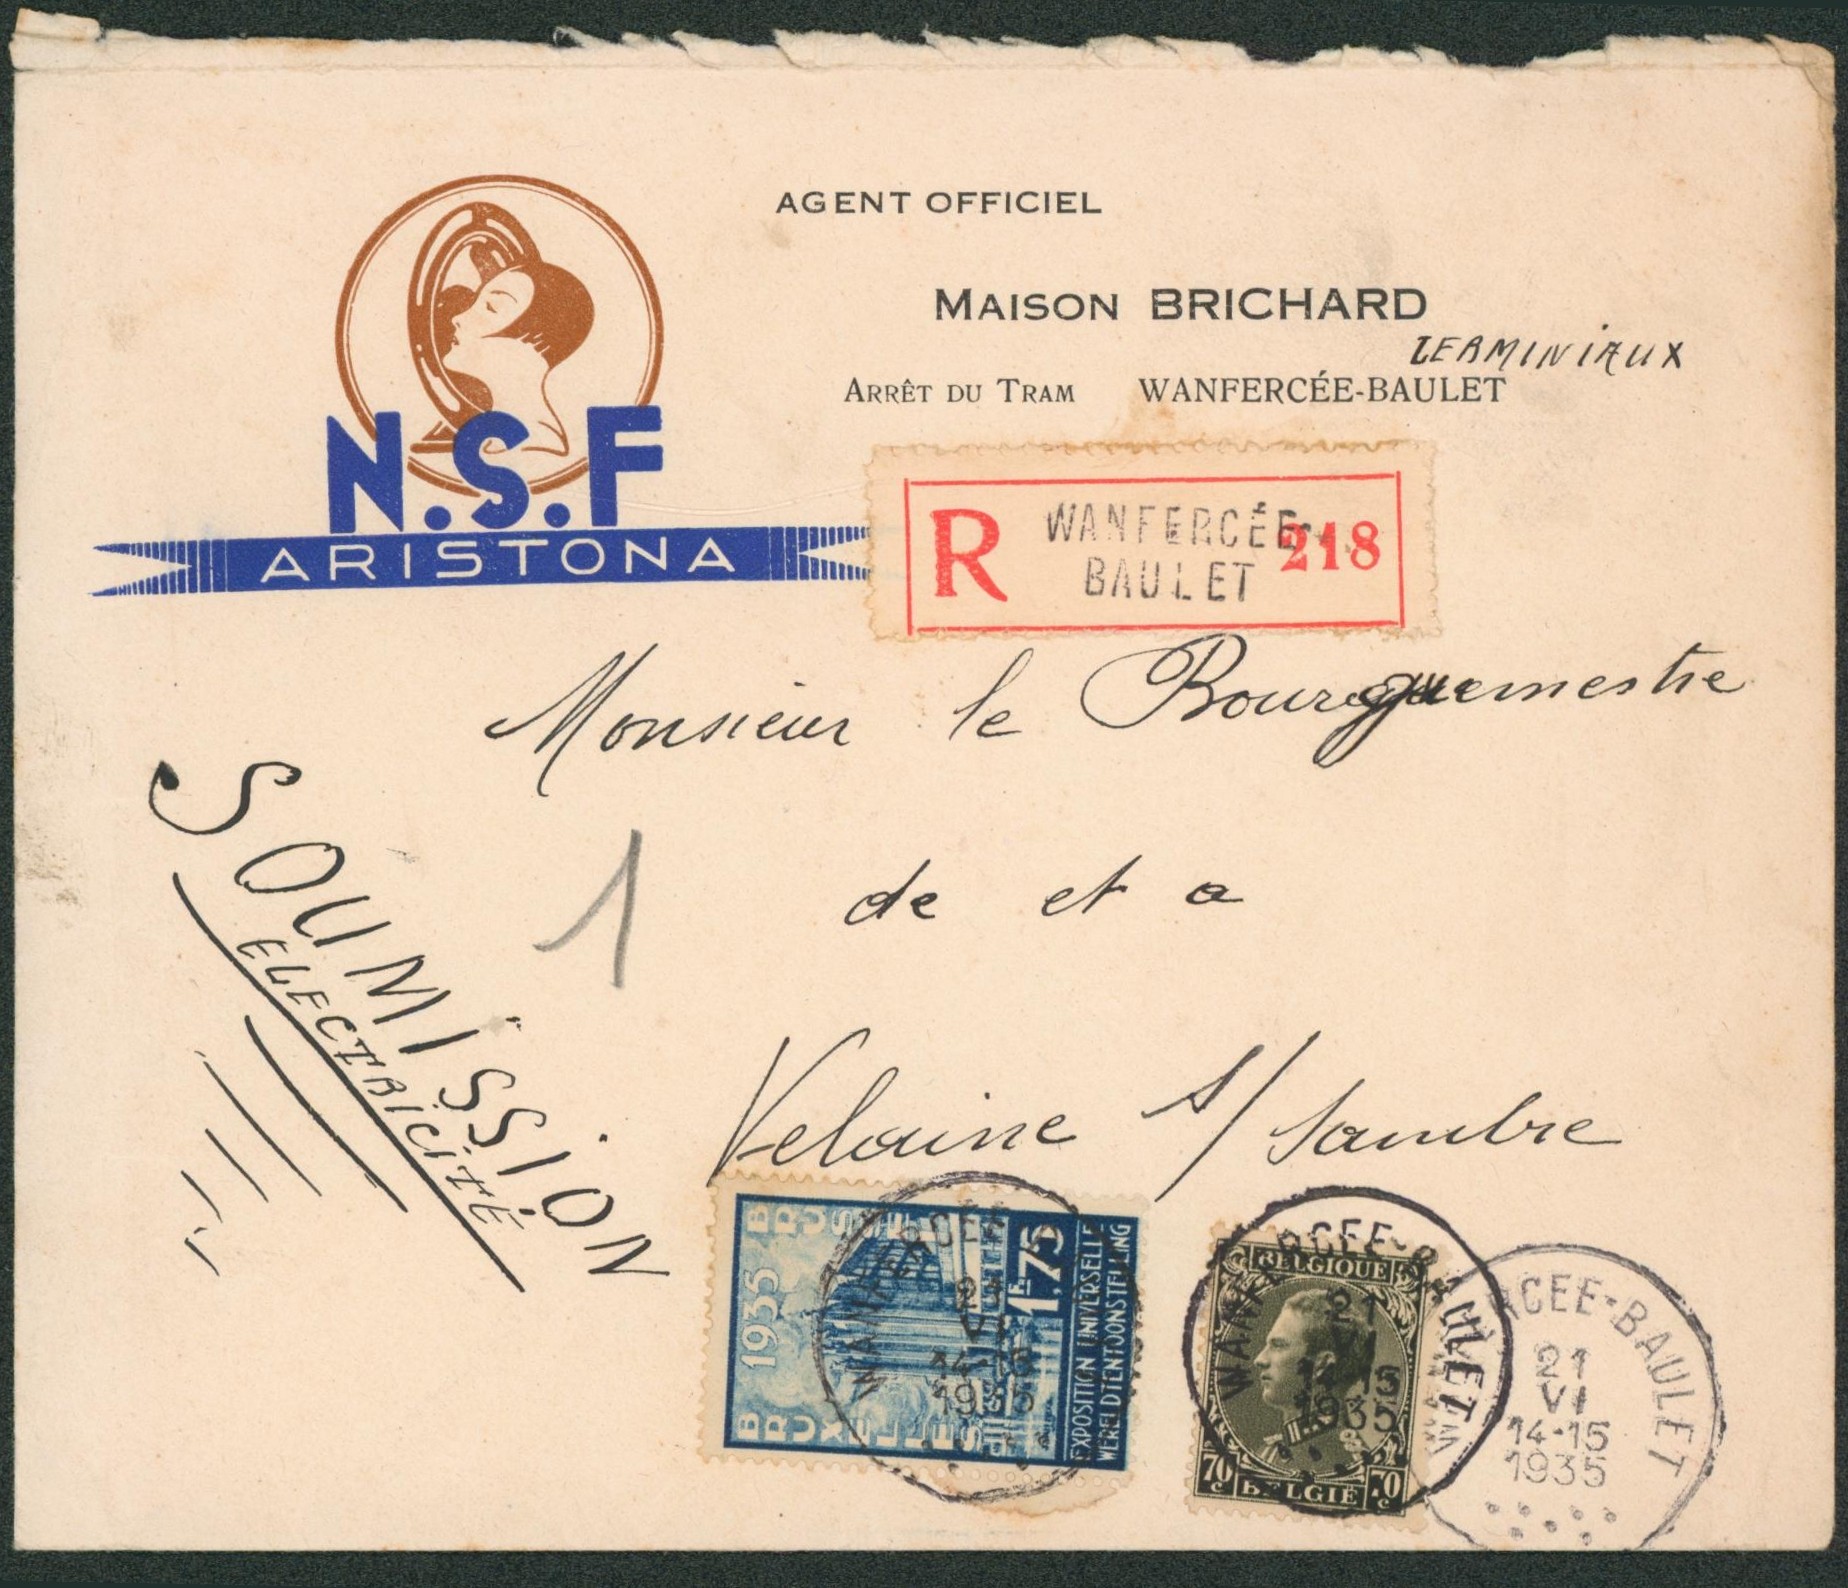 AGENT OFFICIEL
MAISON BRICHARD
TERMINIAUX
ARRÊT DU TRAM WANFERCÉE-BAULET
N.S.F
ARISTONA
R WANFERCÉE- 218
BAULET
Monsieur le Bourguemestre
de et a
Velaine s/ Sambre
SOUMISSION
ELECTRICITÉ
1
1935
BRUSSEL
BRUXELLES
1F.75
EXPOSITION UNIVERSELLE
WERELDTENTOONSTELLING
WANFERCEE
21
VI
14-15
1935
BELGIQUE
70c BELGIË 70c
WANFERCEE-BAULET
21
VI
14-15
1935
RCEE-BAULET
21
VI
14-15
1935